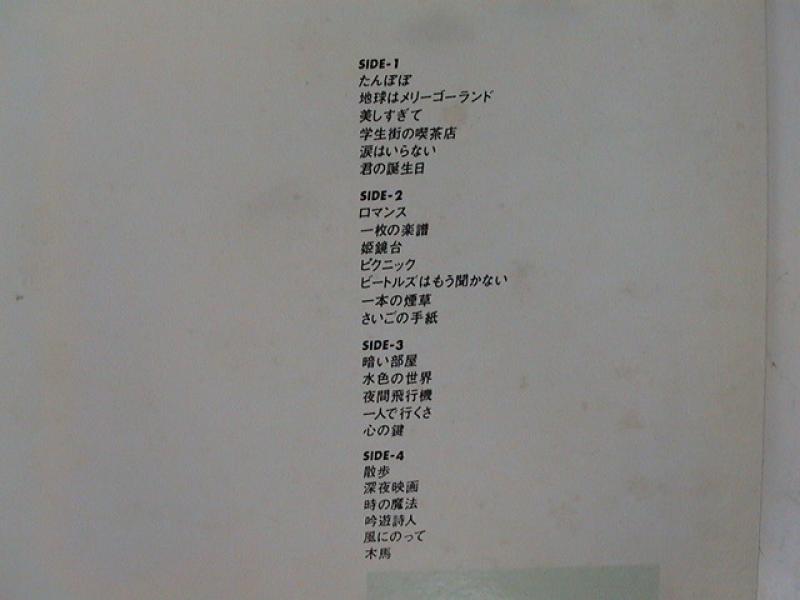 SIDE-1
たんぽぽ
地球はメリーゴーランド
美しすぎて
学生街の喫茶店
涙はいらない
君の誕生日
SIDE-2
ロマンス
一枚の楽譜
姫鏡台
ピクニック
ビートルズはもう聞かない
一本の煙草
さいごの手紙
SIDE-3
暗い部屋
水色の世界
夜間飛行機
一人で行くさ
心の鍵
SIDE-4
散歩
深夜映画
時の魔法
吟遊詩人
風にのって
木馬